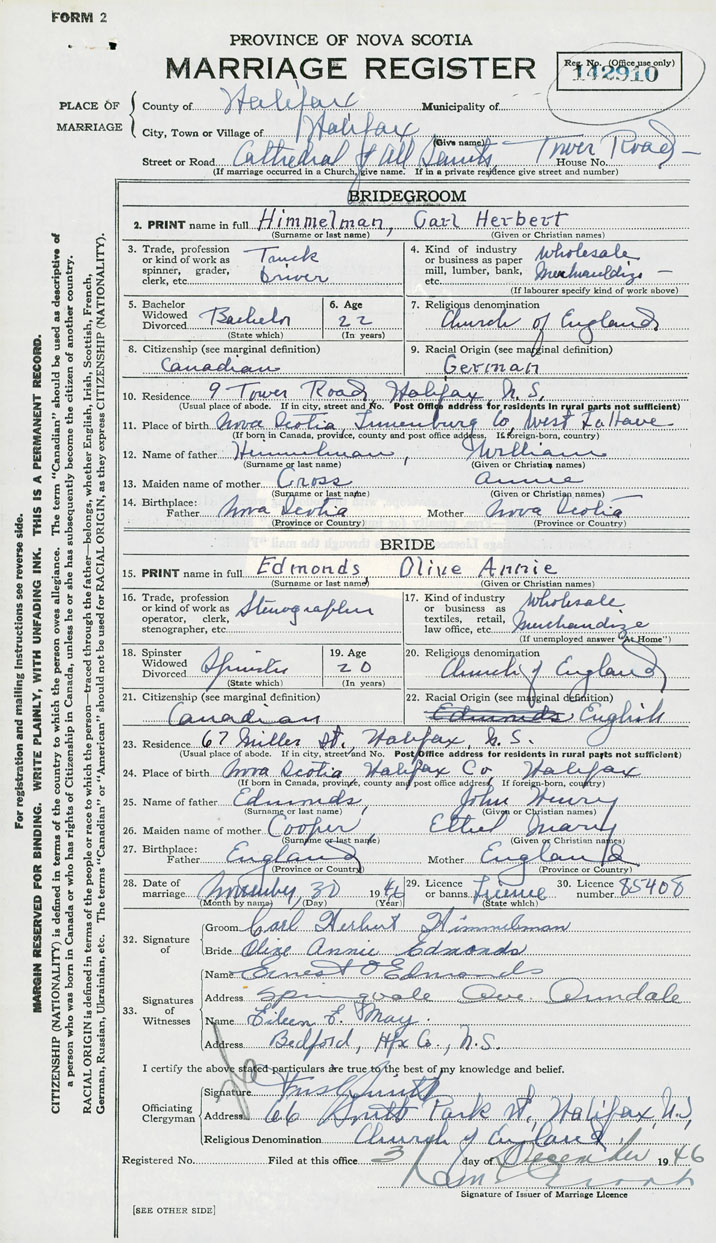 FORM 2
PROVINCE OF NOVA SCOTIA
MARRIAGE REGISTER
Reg. No. (Office use only)
142910
PLACE OF MARRIAGE
County of Halifax Municipality of
City, Town or Village of Halifax
(Give name)
Street or Road Cathedral of All Saints, Tower Road House No.
(If marriage occurred in a Church, give name. If in a private residence give street and number)
BRIDEGROOM
2. PRINT name in full Himmelman, Carl Herbert
(Surname or last name) (Given or Christian names)
3. Trade, profession or kind of work as spinner, grader, clerk, etc. Truck Driver
4. Kind of industry or business as paper mill, lumber, bank, etc. Wholesale Merchandize
(If labourer specify kind of work above)
5. Bachelor Widowed Divorced Bachelor (State which)
6. Age 22 (In years)
7. Religious denomination Church of England
8. Citizenship (see marginal definition) Canadian
9. Racial Origin (see marginal definition) German
10. Residence 9 Tower Road, Halifax, N.S.
(Usual place of abode. If in city, street and No. Post Office address for residents in rural parts not sufficient)
11. Place of birth Nova Scotia, Lunenburg Co, West LaHave
(If born in Canada, province, county and post office address. If foreign-born, country)
12. Name of father Himmelman, William
(Surname or last name) (Given or Christian names)
13. Maiden name of mother Cross Annie
(Surname or last name) (Given or Christian names)
14. Birthplace: Father Nova Scotia Mother Nova Scotia
(Province or Country) (Province or Country)
BRIDE
15. PRINT name in full Edmonds Olive Annie
(Surname or last name) (Given or Christian names)
16. Trade, profession or kind of work as operator, clerk, stenographer, etc. Stenographer
17. Kind of industry or business as textiles, retail, law office, etc. Wholesale Merchandize
(If unemployed answer "At Home")
18. Spinster Widowed Divorced Spinster (State which)
19. Age 20 (In years)
20. Religious denomination Church of England
21. Citizenship (see marginal definition) Canadian
22. Racial Origin (see marginal definition) Edmonds English
23. Residence 67 Miller St., Halifax, N.S.
(Usual place of abode. If in city, street and No. Post Office address for residents in rural parts not sufficient)
24. Place of birth Nova Scotia Halifax Co, Halifax
(If born in Canada, province, county and post office address, If foreign-born, country)
25. Name of father Edmonds, John Henry
(Surname or last name) (Given or Christian names)
26. Maiden name of mother Cooper, Ethel Mary
(Surname or last name) (Given or Christian names)
27. Birthplace: Father England Mother England
(Province or Country) (Province or Country)
28. Date of marriage November 30 1946
(Month by name) (Day) (Year)
29. Licence or banns Licence (State which)
30. Licence number 85408
32. Signature of
Groom Carl Herbert Himmelman
Bride Olive Annie Edmonds
33. Signatures of Witnesses
Name Ernest O Edmonds
Address Springvale Ave Armdale
Name Eileen E. May.
Address Bedford, Hfx Co., N.S.
I certify the above stated particulars are true to the best of my knowledge and belief.
Officiating Clergyman
Signature
Address 66 South Park St, Halifax, N.S.
Religious Denomination Church of England
Registered No. Filed at this office 3 day of December 1946
Signature of Issuer of Marriage Licence
[SEE OTHER SIDE]
For registration and mailing instructions see reverse side.
MARGIN RESERVED FOR BINDING. WRITE PLAINLY, WITH UNFADING INK. THIS IS A PERMANENT RECORD.
CITIZENSHIP (NATIONALITY) is defined in terms of the country to which the person owes allegiance. The term "Canadian" should be used as descriptive of
a person who was born in Canada or who has rights of Citizenship in Canada, unless he or she has subsequently become the citizen of another country.
RACIAL ORIGIN is defined in terms of the people or race to which the person—traced through the father—belongs, whether English, Irish, Scottish, French,
German, Russian, Ukrainian, etc. The terms "Canadian" or "American" should not be used for RACIAL ORIGIN, as they express CITIZENSHIP (NATIONALITY).